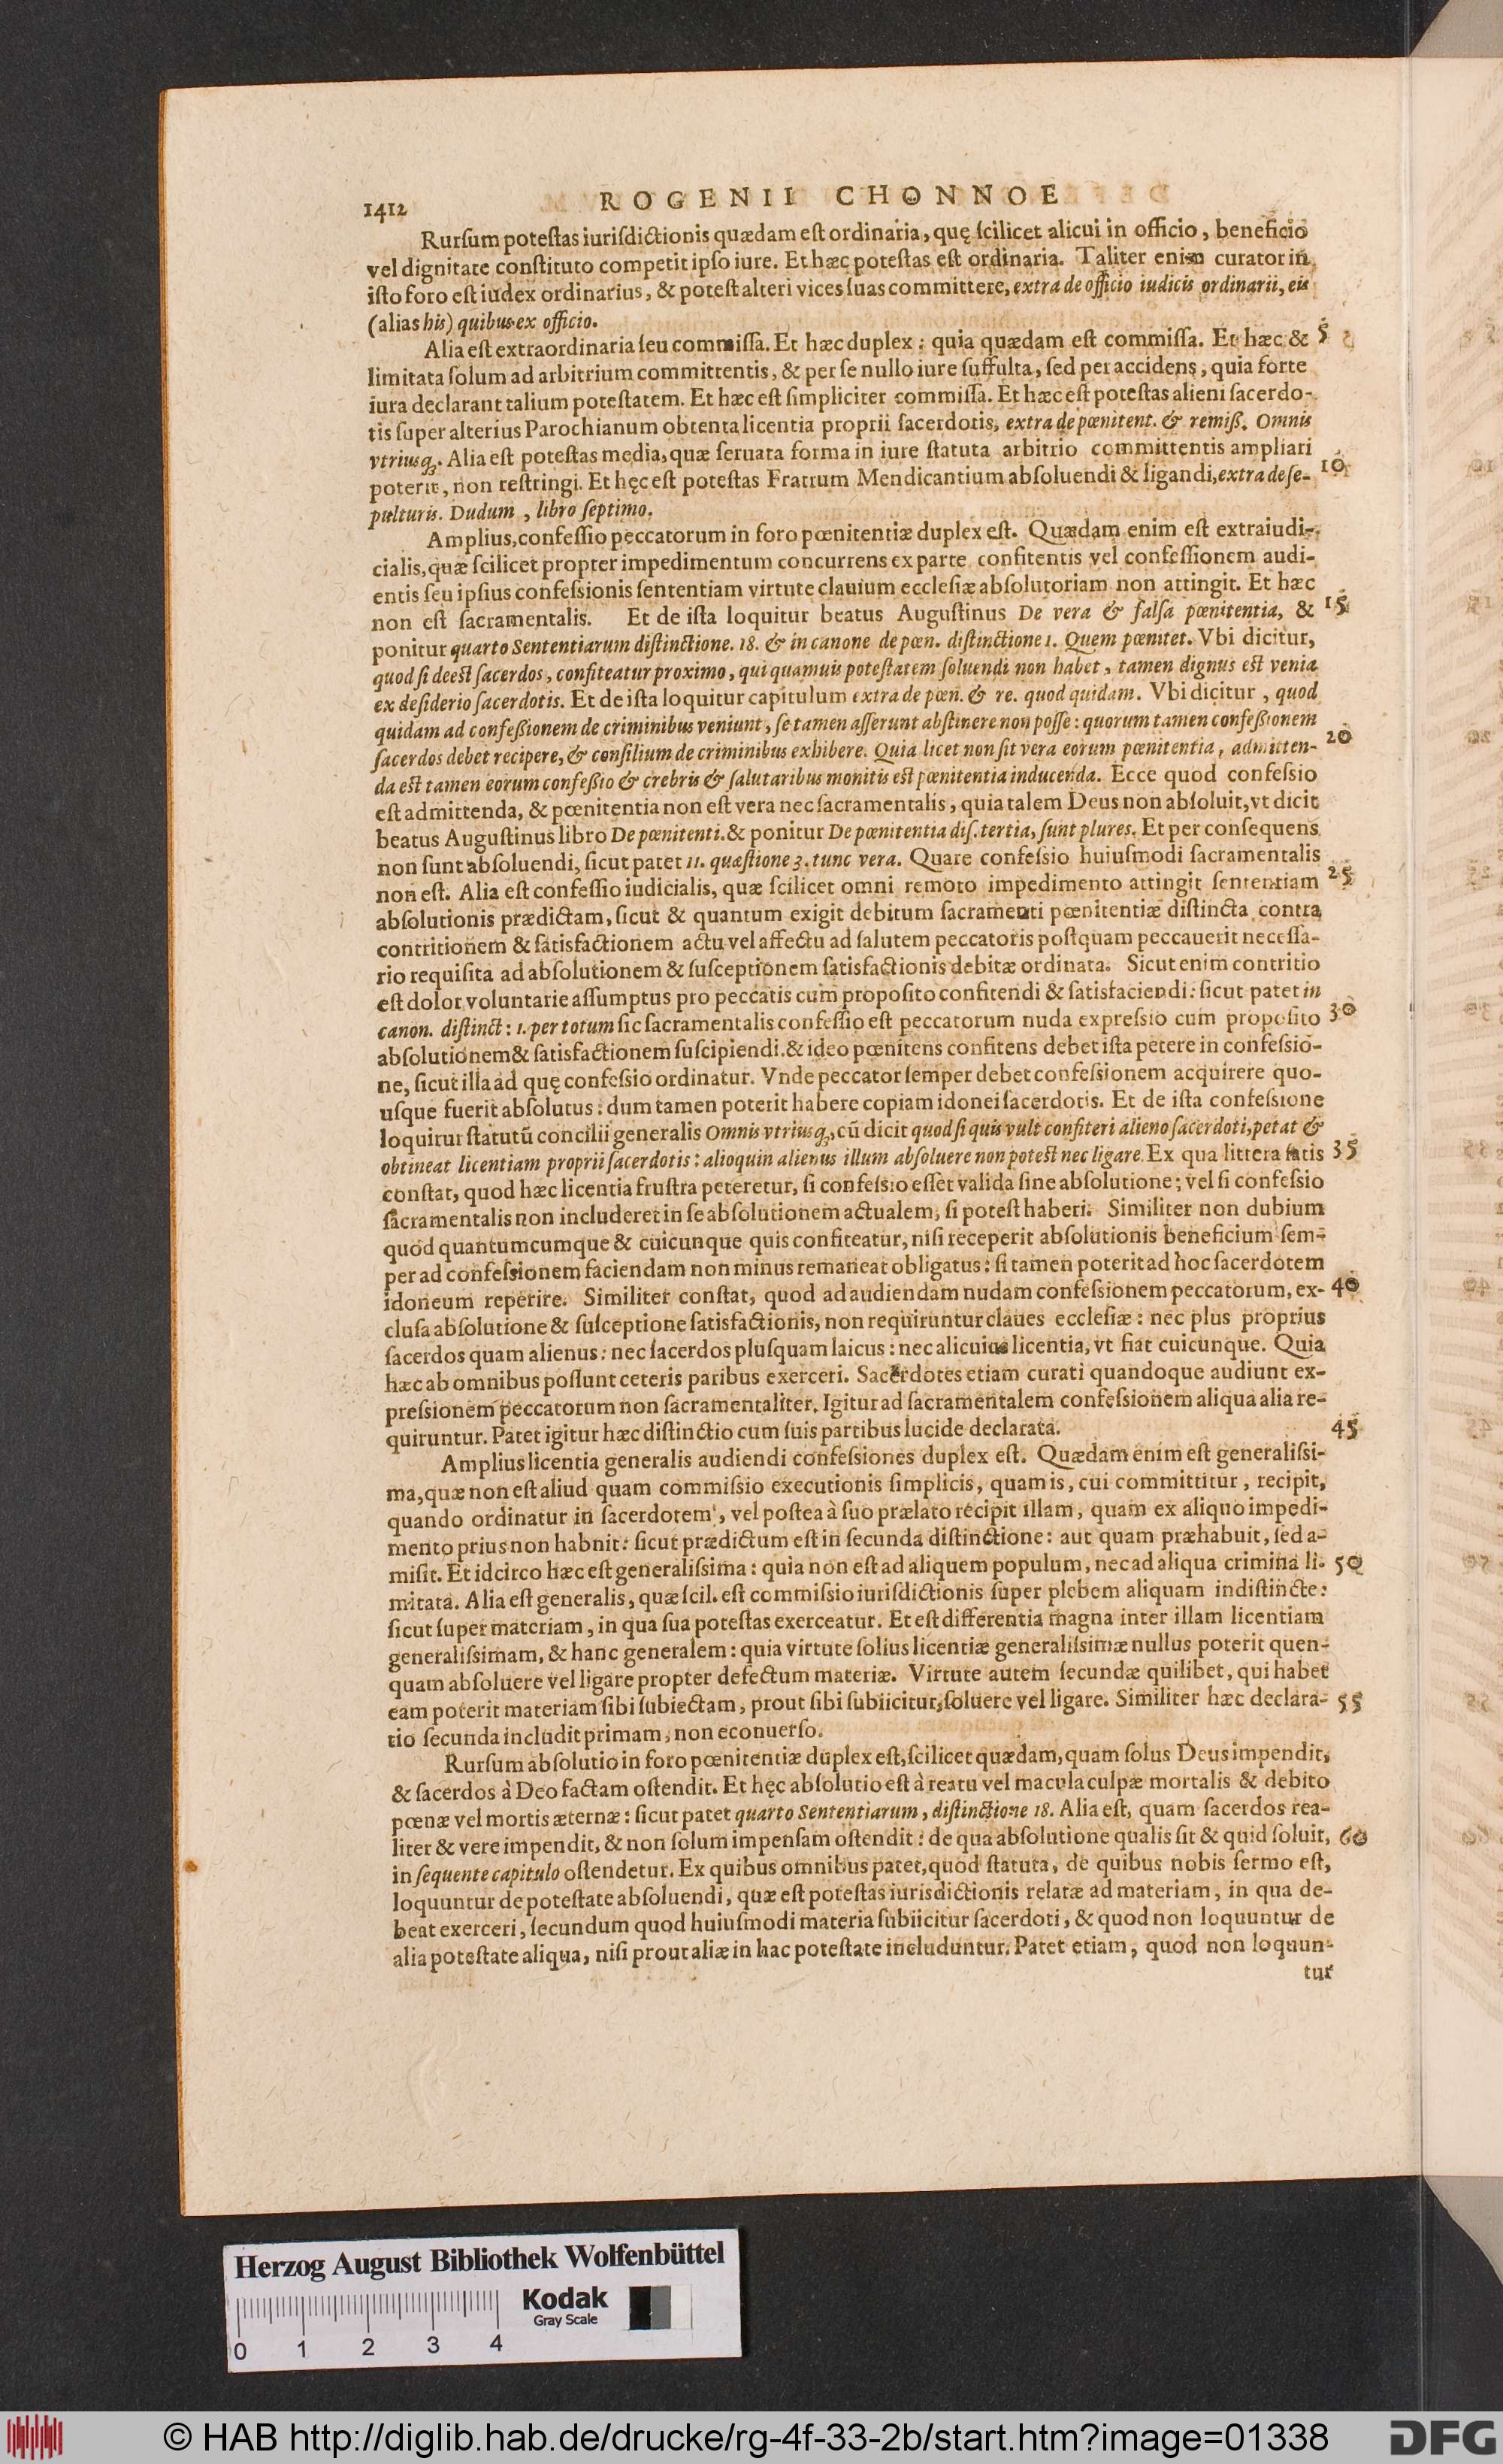 1412 ROGENII CHONNOE
Rurſum poteſtas iuriſdictionis quædam eſt ordinaria, quę ſcilicet alicui in officio, beneficio
vel dignitate conſtituto competit ipſo iure. Et hæc poteſtas eſt ordinaria. Taliter enim curator in
iſto foro eſt iudex ordinarius, & poteſt alteri vices ſuas committere, extra de officio iudicis ordinarii, eis
(alias his) quibus ex officio.
Alia eſt extraordinaria ſeu commiſſa. Et hæc duplex: quia quædam eſt commiſſa. Et hæc & 5
limitata ſolum ad arbitrium committentis, & per ſe nullo iure ſuffulta, ſed per accidens, quia forte
iura declarant talium poteſtatem. Et hæc eſt ſimpliciter commiſſa. Et hæc eſt poteſtas alieni ſacerdo-
tis ſuper alterius Parochianum obtenta licentia proprii ſacerdotis, extra de pœnitent. & remiß. Omnis
vtriusq;. Alia eſt poteſtas media, quæ ſeruata forma in iure ſtatuta arbitrio committentis ampliari
poterit, non reſtringi. Et hęc eſt poteſtas Fratrum Mendicantium abſoluendi & ligandi, extra de ſe- 10
pulturis. Dudum, libro ſeptimo.
Amplius, confeſſio peccatorum in foro pœnitentiæ duplex eſt. Quædam enim eſt extraiudi-
cialis, quæ ſcilicet propter impedimentum concurrens ex parte confitentis vel confeſſionem audi-
entis ſeu ipſius confeſsionis ſententiam virtute clauium eccleſiæ abſolutoriam non attingit. Et hæc
non eſt ſacramentalis. Et de iſta loquitur beatus Auguſtinus De vera & falſa pœnitentia, & 15
ponitur quarto Sententiarum diſtinctione. 18. & in canone de pœn. diſtinctione 1. Quem pœnitet. Vbi dicitur,
quod ſi deest ſacerdos, confiteatur proximo, qui quamuis poteſtatem ſoluendi non habet, tamen dignus est venia
ex deſiderio ſacerdotis. Et de iſta loquitur capitulum extra de pœn. & re. quod quidam. Vbi dicitur, quod
quidam ad confeßionem de criminibus veniunt, ſe tamen aſſerunt abſtinere non poſſe: quorum tamen confeßionem
ſacerdos debet recipere, & conſilium de criminibus exhibere. Quia licet non ſit vera eorum pœnitentia, admitten- 20
da est tamen eorum confeßio & crebris & ſalutaribus monitis est pœnitentia inducenda. Ecce quod confeſsio
eſt admittenda, & pœnitentia non eſt vera nec ſacramentalis, quia talem Deus non abſoluit, vt dicit
beatus Auguſtinus libro De pœnitenti. & ponitur De pœnitentia diſ. tertia, ſunt plures. Et per conſequens
non ſunt abſoluendi, ſicut patet 11. quæſtione 3. tunc vera. Quare confeſsio huiuſmodi ſacramentalis
non eſt. Alia eſt confeſſio iudicialis, quæ ſcilicet omni remoto impedimento attingit ſententiam 25
abſolutionis prædictam, ſicut & quantum exigit debitum ſacramenti pœnitentiæ diſtincta contra
contritionem & ſatisfactionem actu vel affectu ad ſalutem peccatoris poſtquam peccauerit neceſſa-
rio requiſita ad abſolutionem & ſuſceptionem ſatisfactionis debitæ ordinata. Sicut enim contritio
eſt dolor voluntarie aſſumptus pro peccatis cum propoſito confitendi & ſatisfaciendi: ſicut patet in
canon. diſtinct: 1. per totum ſic ſacramentalis confeſſio eſt peccatorum nuda expreſsio cum propoſito 30
abſolutionem & ſatisfactionem ſuſcipiendi. & ideo pœnitens confitens debet iſta petere in confeſsio-
ne, ſicut illa ad quę confeſsio ordinatur. Vnde peccator ſemper debet confeſsionem acquirere quo-
uſque fuerit abſolutus: dum tamen poterit habere copiam idonei ſacerdotis. Et de iſta confeſsione
loquitur ſtatutū concilii generalis Omnis vtriusq;, cū dicit quod ſi quis vult confiteri alieno ſacerdoti, petat &
obtineat licentiam proprii ſacerdotis: alioquin alienus illum abſoluere non potest nec ligare. Ex qua littera ſatis 35
conſtat, quod hæc licentia fruſtra peteretur, ſi confeſsio eſſet valida ſine abſolutione; vel ſi confeſsio
ſacramentalis non includeret in ſe abſolutionem actualem, ſi poteſt haberi. Similiter non dubium
quod quantumcumque & cuicunque quis confiteatur, niſi receperit abſolutionis beneficium ſem-
per ad confeſsionem faciendam non minus remaneat obligatus: ſi tamen poterit ad hoc ſacerdotem
idoneum reperire. Similiter conſtat, quod ad audiendam nudam confeſsionem peccatorum, ex- 40
cluſa abſolutione & ſuſceptione ſatisfactionis, non requiruntur claues eccleſiæ: nec plus proprius
ſacerdos quam alienus: nec ſacerdos pluſquam laicus: nec alicuius licentia, vt fiat cuicunque. Quia
hæc ab omnibus poſſunt ceteris paribus exerceri. Sacerdotes etiam curati quandoque audiunt ex-
preſsionem peccatorum non ſacramentaliter. Igitur ad ſacramentalem confeſsionem aliqua alia re-
quiruntur. Patet igitur hæc diſtinctio cum ſuis partibus lucide declarata. 45
Amplius licentia generalis audiendi confeſsiones duplex eſt. Quædam enim eſt generaliſsi-
ma, quæ non eſt aliud quam commiſsio executionis ſimplicis, quam is, cui committitur, recipit,
quando ordinatur in ſacerdotem, vel poſtea à ſuo prælato recipit illam, quam ex aliquo impedi-
mento prius non habnit: ſicut prædictum eſt in ſecunda diſtinctione: aut quam præhabuit, ſed a-
miſit. Et idcirco hæc eſt generaliſsima: quia non eſt ad aliquem populum, nec ad aliqua crimina li- 50
mitata. Alia eſt generalis, quæ ſcil. eſt commiſsio iuriſdictionis ſuper plebem aliquam indiſtincte:
ſicut ſuper materiam, in qua ſua poteſtas exerceatur. Et eſt differentia magna inter illam licentiam
generaliſsimam, & hanc generalem: quia virtute ſolius licentiæ generaliſsimæ nullus poterit quen-
quam abſoluere vel ligare propter defectum materiæ. Virtute autem ſecundæ quilibet, qui habet
eam poterit materiam ſibi ſubiectam, prout ſibi ſubiicitur, ſoluere vel ligare. Similiter hæc declara- 55
tio ſecunda includit primam, non econuerſo.
Rurſum abſolutio in foro pœnitentiæ duplex eſt, ſcilicet quædam, quam ſolus Deus impendit,
& ſacerdos à Deo factam oſtendit. Et hęc abſolutio eſt à reatu vel macula culpæ mortalis & debito
pœnæ vel mortis æternæ: ſicut patet quarto Sententiarum, diſtinctione 18. Alia eſt, quam ſacerdos rea-
liter & vere impendit, & non ſolum impenſam oſtendit: de qua abſolutione qualis ſit & quid ſoluit, 60
in ſequente capitulo oſtendetur. Ex quibus omnibus patet, quod ſtatuta, de quibus nobis ſermo eſt,
loquuntur de poteſtate abſoluendi, quæ eſt poteſtas iurisdictionis relatæ ad materiam, in qua de-
beat exerceri, ſecundum quod huiuſmodi materia ſubiicitur ſacerdoti, & quod non loquuntur de
alia poteſtate aliqua, niſi prout aliæ in hac poteſtate includuntur. Patet etiam, quod non loquun-
tur
Herzog August Bibliothek Wolfenbüttel
Kodak
Gray Scale
0 1 2 3 4
© HAB http://diglib.hab.de/drucke/rg-4f-33-2b/start.htm?image=01338
DFG